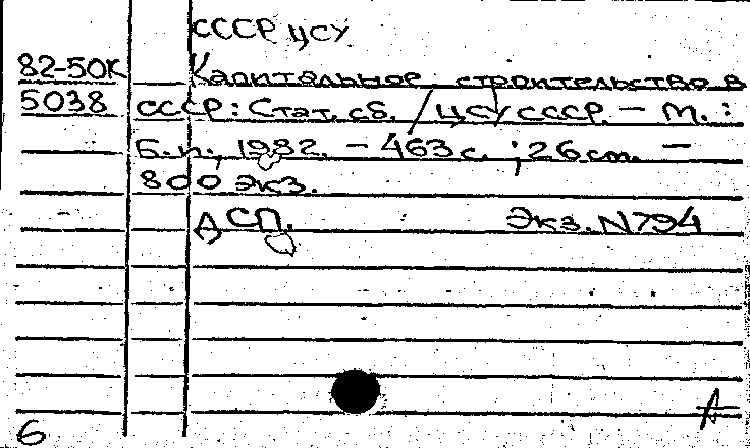 СССР ЦСУ
82-50К Капитальное строительство в
5038 СССР: Стат. сб. / ЦСУ СССР. — М. :
Б.и., 1982. — 463 с. ; 26 см. —
800 экз.
ДСП. Экз. N794
6